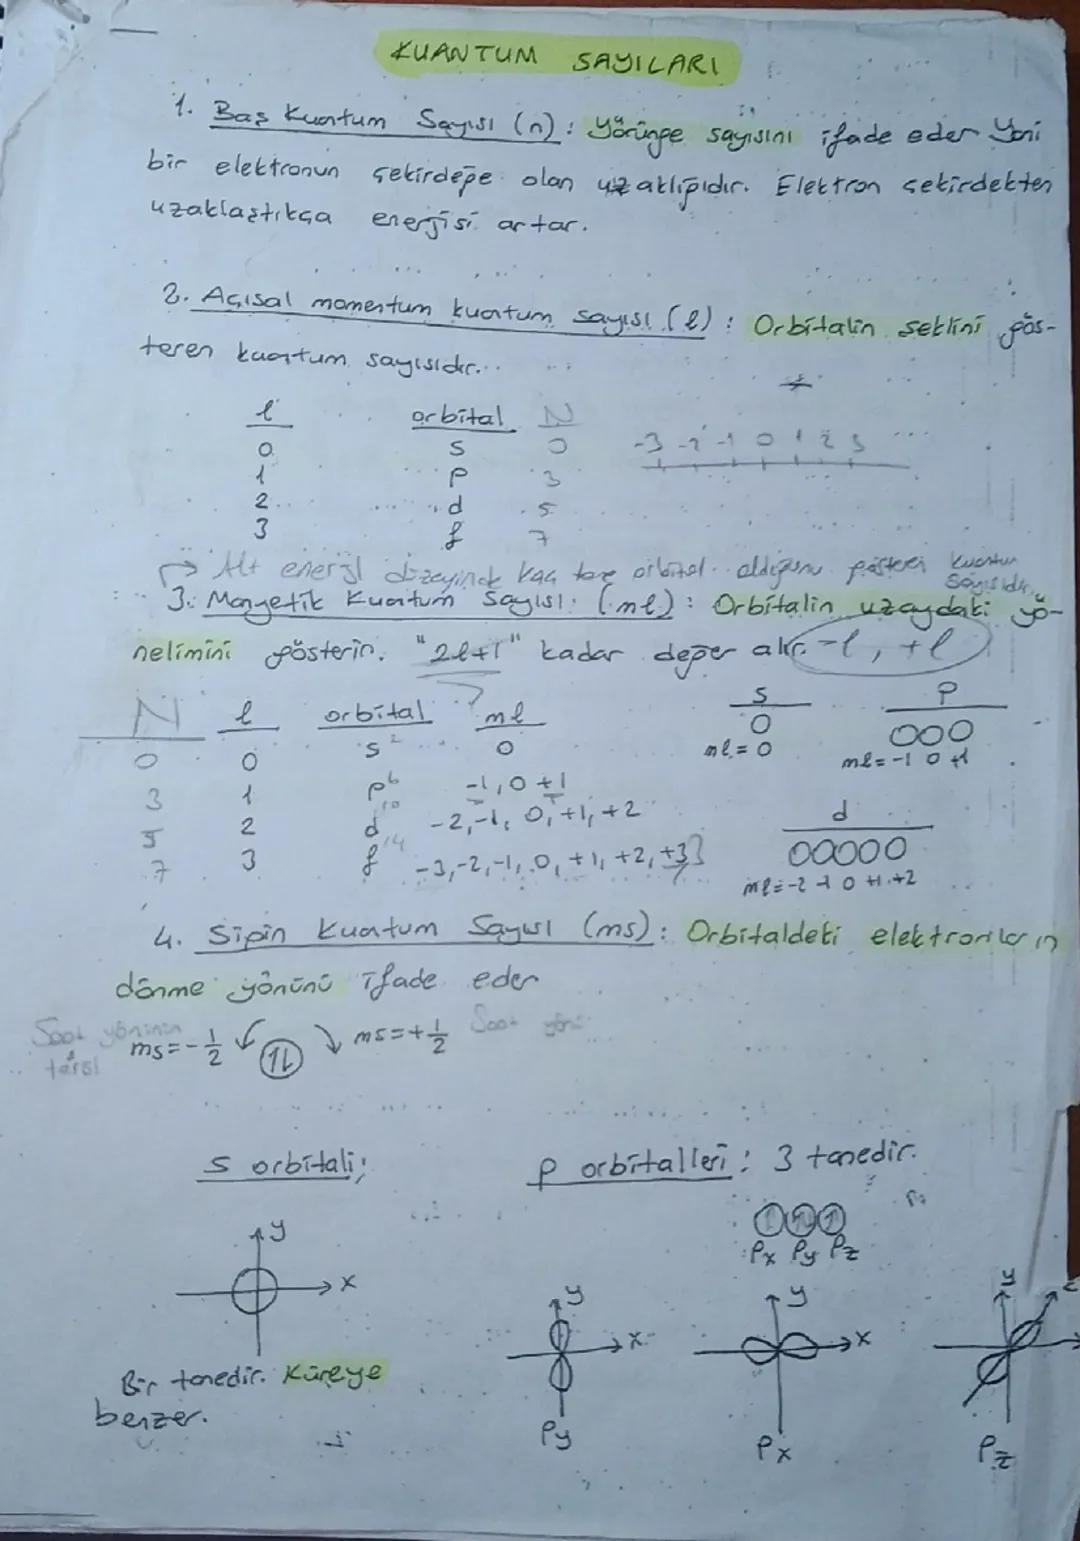 KUANTUM SAYILARI
1. Baş Kuantum Sayısı (n): Yörünge sayısını ifade eder Yani
bir elektronun çekirdeğe olan uzaklığıdır. Elektron çekirdekten
uzaklaştıkça enerjisi artar.
2. Açısal momentum kuantum sayısı (l): Orbitalin şeklini gös-
teren kuantum sayısıdır.
l orbital N
0 s 0
1 p 3
2 d 5
3 f 7
-3 -2 -1 0 1 2 3
→ Alt enerji düzeyinde kaç tane orbital olduğunu gösteren kuantum
sayısıdır.
3. Manyetik Kuantum Sayısı (ml): Orbitalin uzaydaki yö-
nelimini gösterir. "2l+1" kadar değer alır. -l, +l
N l orbital ml
0 0 s² 0
3 1 p⁶ -1, 0 +1
5 2 d¹⁰ -2, -1, 0, +1, +2
7 3 f¹⁴ -3, -2, -1, 0, +1, +2, +3
s
ml = 0
p
ml = -1 0 +1
d
ml = -2 -1 0 +1 +2
4. Sipin Kuantum Sayısı (ms): Orbitaldeki elektronların
dönme yönünü ifade eder
Saat yönünün
tersi
ms = -1/2 ↙ ↿⇂ ↘ ms = +1/2 Saat yönü
s orbitali;
y
x
Bir tanedir. Küreye
benzer.
p orbitalleri: 3 tanedir.
Px Py Pz
y
x
Py
y
x
Px
y
z
Pz